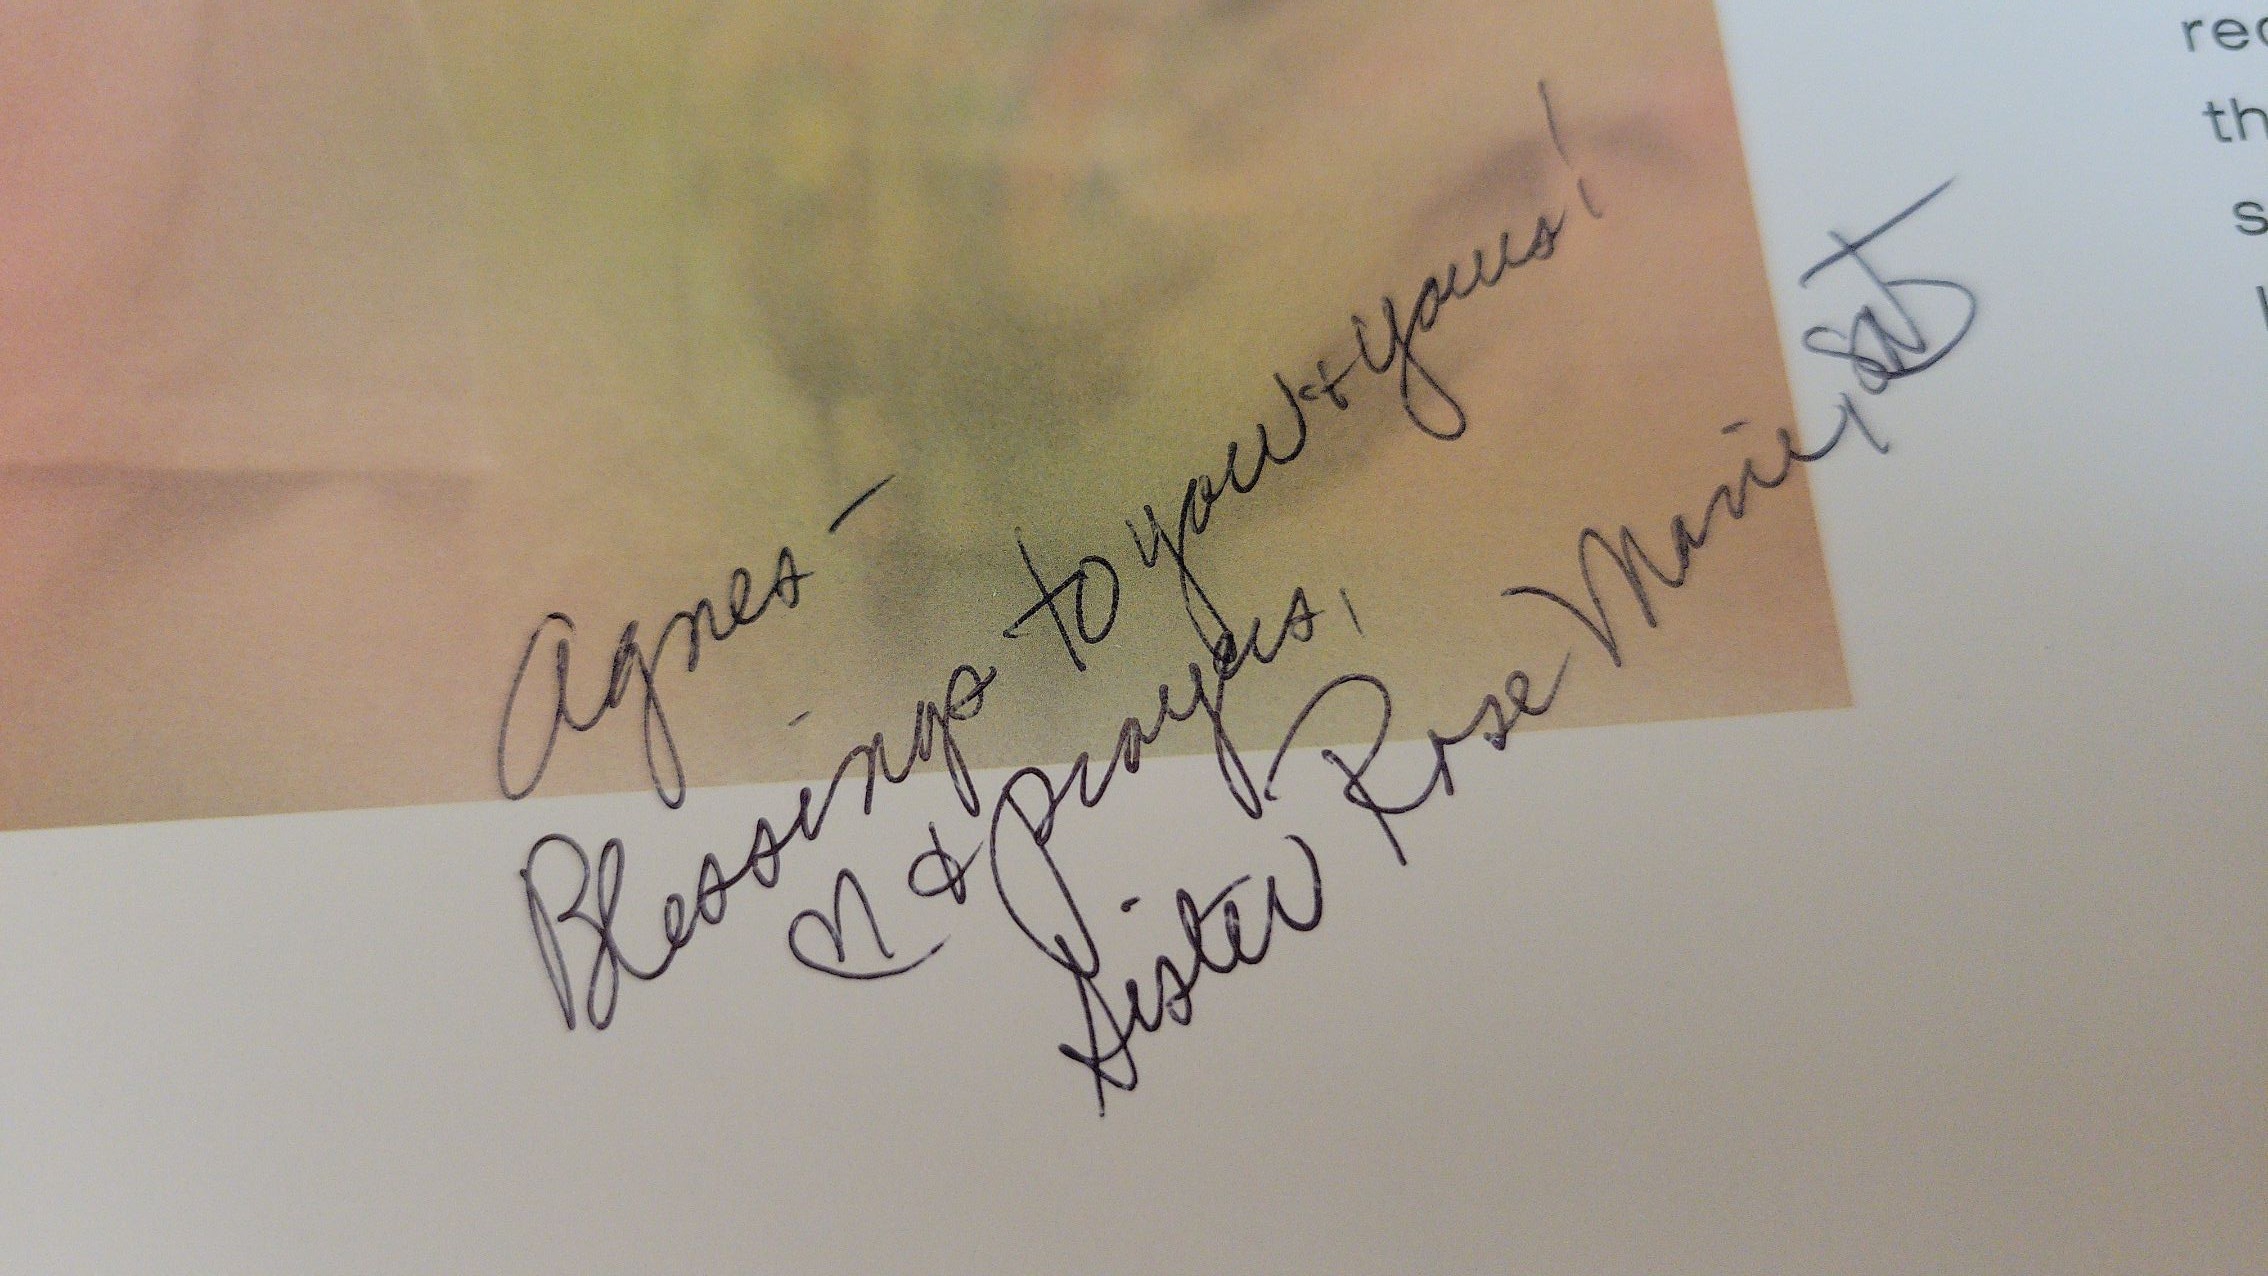 Agnes –
Blessings to you & yours!
♡ & Prayers,
Sister Rose Marie, 
rec
th
s